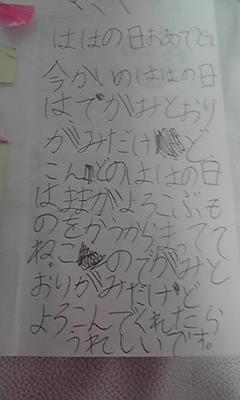 ははの日おめでとう
今かいのははの日
はてがみとおり
がみだけど、
こんどのははの日
はままがよろこぶも
のをかうからまってて
ね。このてがみと
おりがみだけど
よろこんでくれたら
うれしいです。